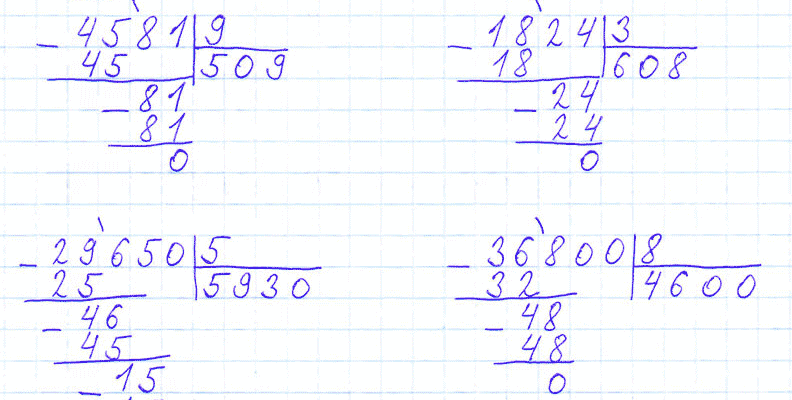 - 4581 | 9
45 | 509
- 81
81
0
- 1824 | 3
18 | 608
- 24
24
0
- 29650 | 5
25 | 5930
- 46
45
- 15
- 36800 | 8
32 | 4600
- 48
48
0